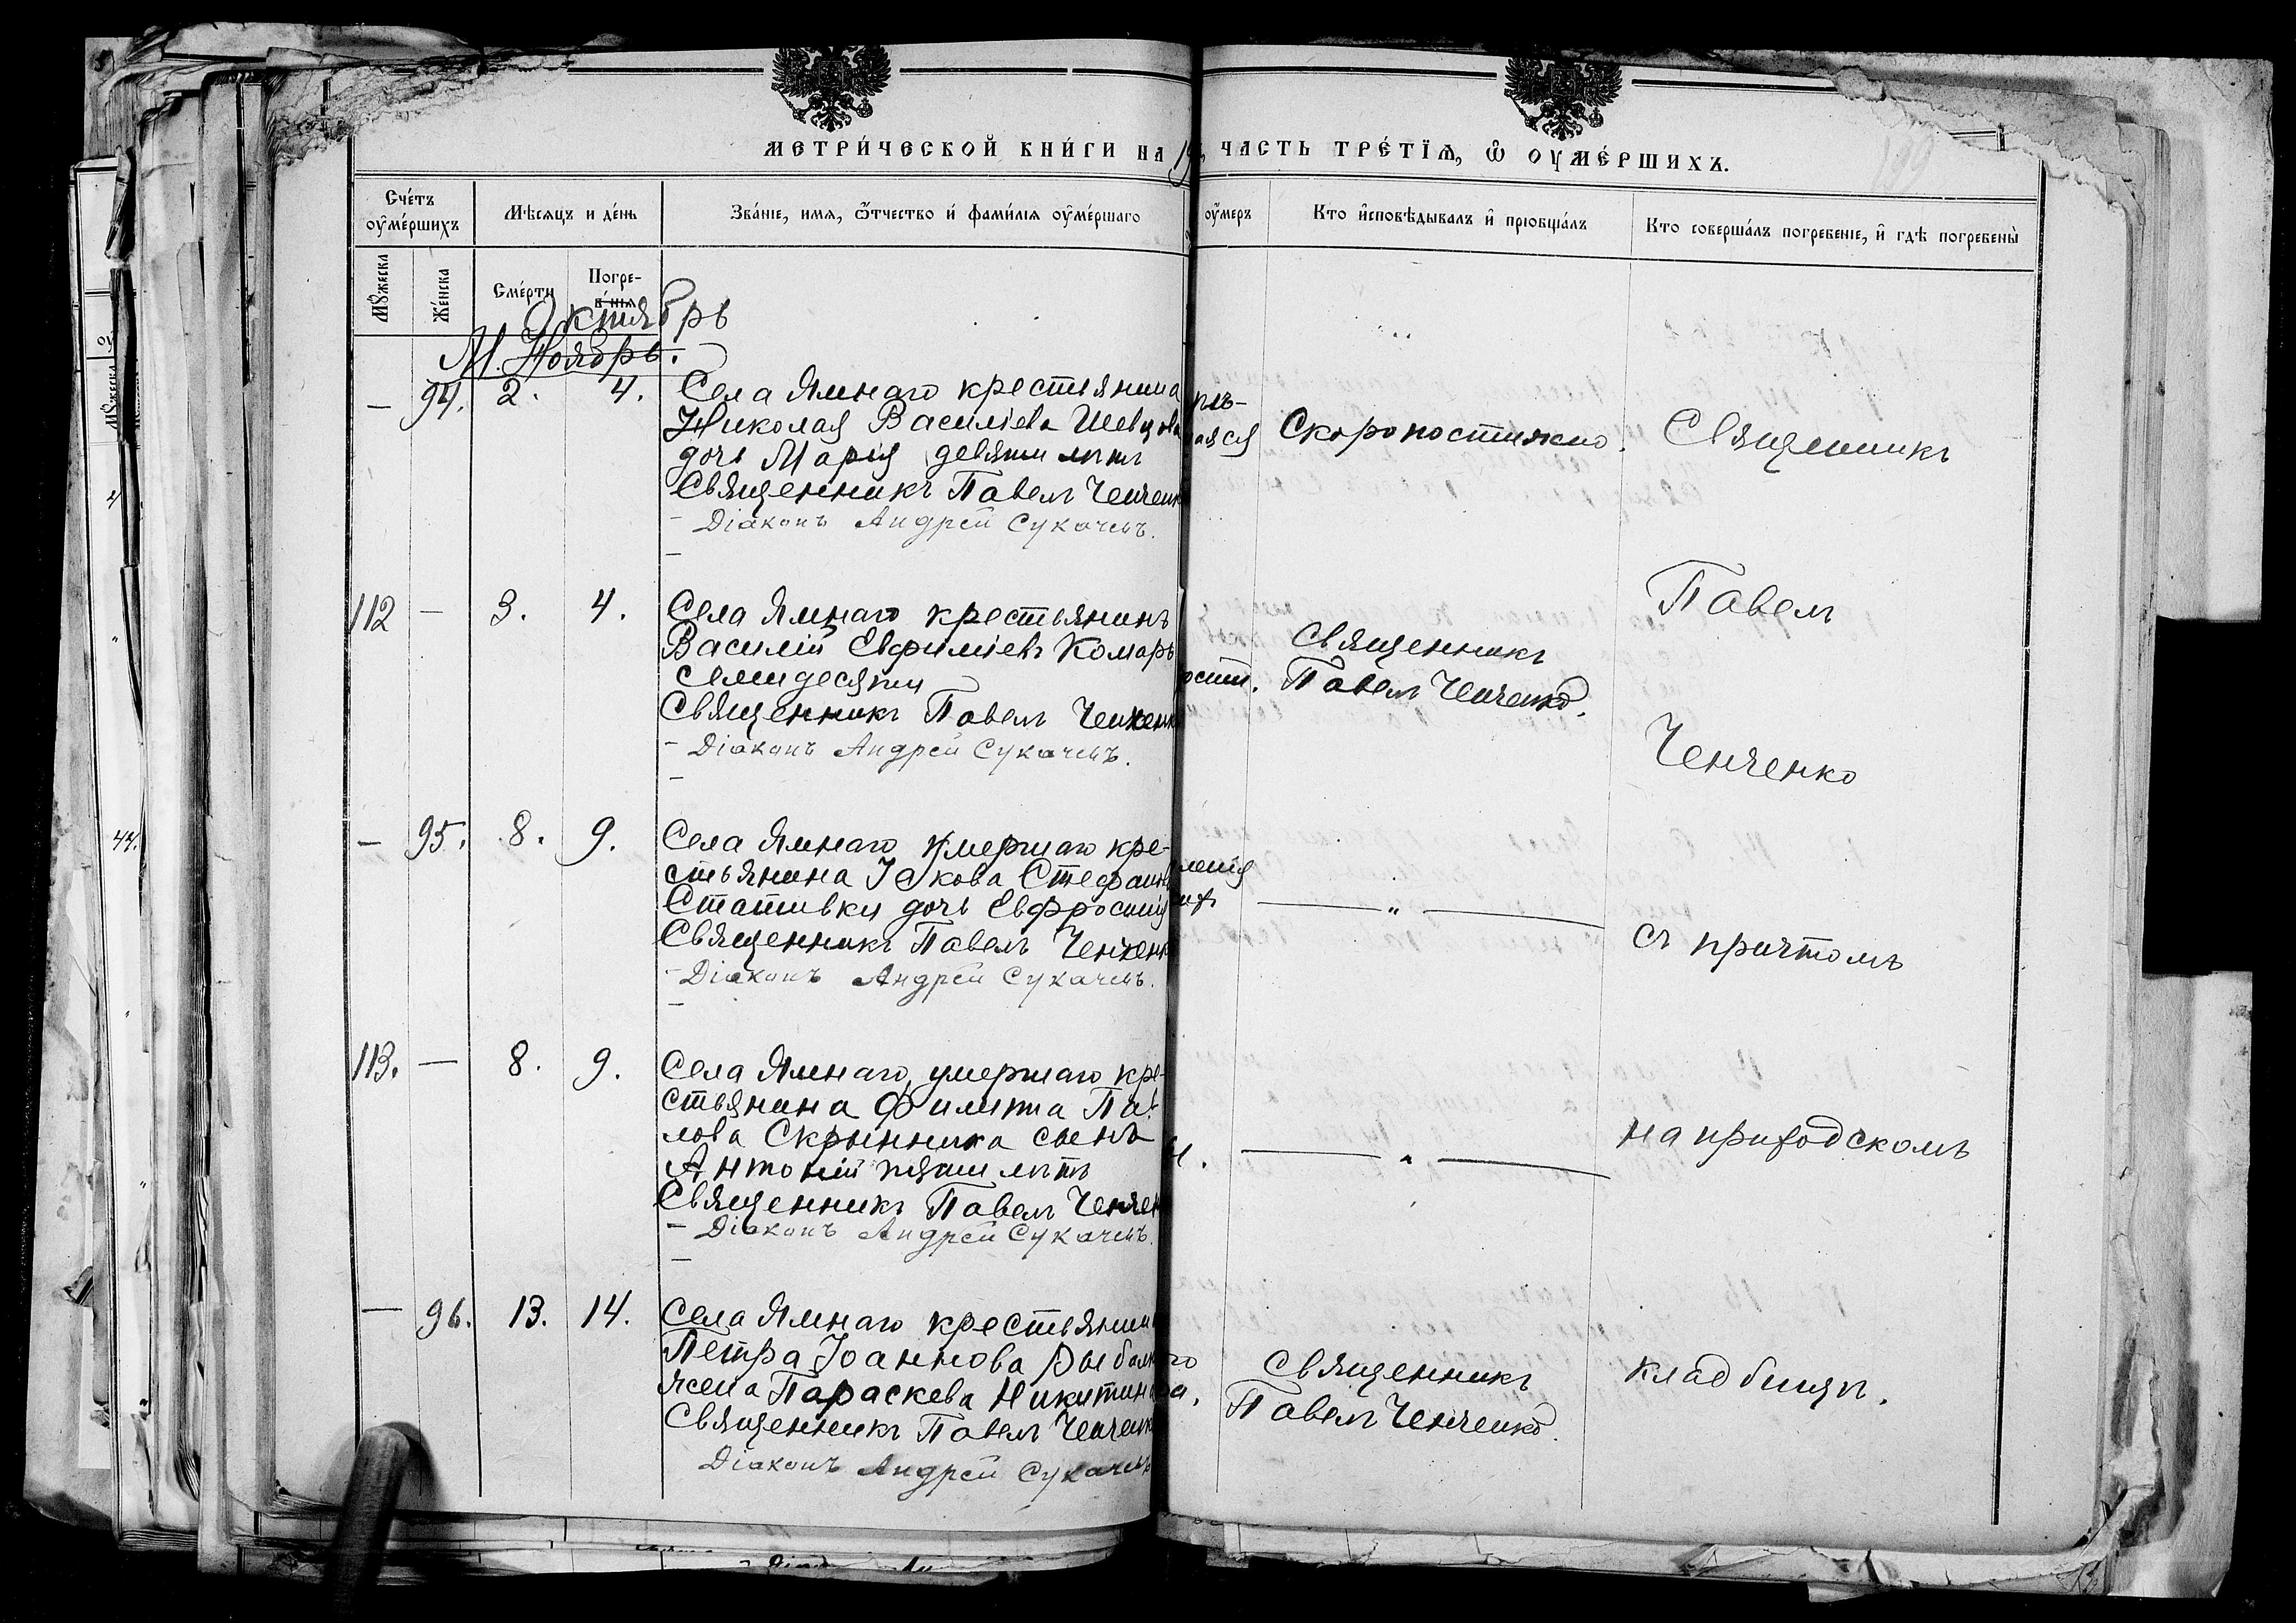 МЕТРИ́ЧЕСКОЙ КНИ́ГИ НА 19
ЧАСТЬ ТРЕ́ТІѦ, Ѽ ОУМЕ́РШИХЪ.
Сче́тъ оуме́ршихъ
Мѣсяцъ и де́нь
Зва́ніе, имя, ѿтчество и́ фами́лія оуме́ршаго
оумеръ
Кто и́сповѣдывалъ и́ пріобща́лъ
Кто соверша́лъ погребеніе, и́ гдѣ погребены̀
Мꙋжеска
Же́нска
Сме́рти
Погре-
бе́нія
Октябрь
М. Ноябрь.
— 94. 2. 4. Села Ямнаго крестьянина
Николая Василіева Шевцова
дочь Марія девяти лѣтъ
Священникъ Павелъ Ченченк
- Діаконъ Андрей Сукачевъ.
аяся
Скоропостижно.
Священникъ
112 — 3. 4. Села Ямнаго крестьянинъ
Василій Евфиміевъ Комаръ
семидесяти
Священникъ Павелъ Ченченк
- Діаконъ Андрей Сукачевъ.
ости.
Священникъ
Павелъ Ченченко.
Павелъ
Ченченко
— 95. 8. 9. Села Ямнаго умершаго кре-
стьянина Іакова Стефанов
Стативки дочь Евфросинія
Священникъ Павелъ Ченченк
- Діаконъ Андрей Сукачевъ.
— " —
съ причтомъ
113. — 8. 9. Села Ямнаго, умершаго кре-
стьянина Филиппа Пав-
лова Скрынника сынъ
Антоній пяти лѣтъ
Священникъ Павелъ Ченчен
- Діаконъ Андрей Сукачевъ.
— " —
на приходскомъ
— 96. 13. 14. Села Ямнаго крестьянин
Петра Іоаннова Рыбалк
жена Параскева Никитин
Священникъ Павелъ Ченченк
Діаконъ Андрей Сукачевъ
Священникъ
Павелъ Ченченко.
кладбищѣ.